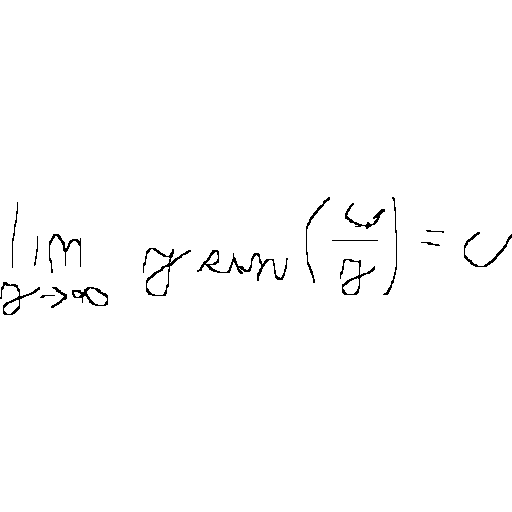 lim_{y→∞} y sin(u/y) = u